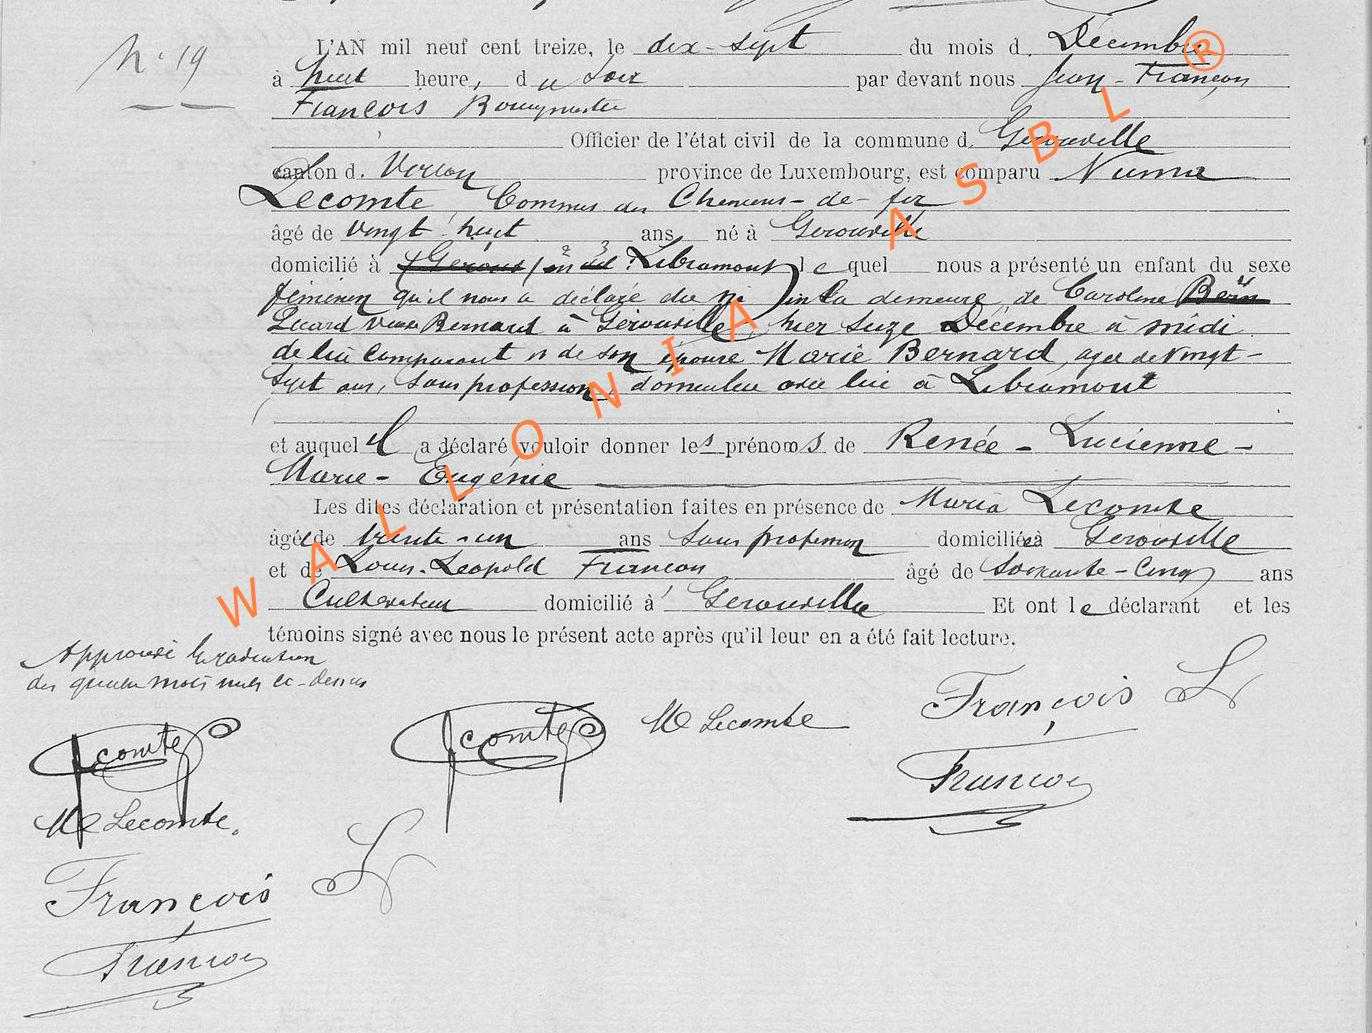 N° 19
L'AN mil neuf cent treize, le dix-sept du mois d. Décembre
à huit heure, du Soir par devant nous Jean-François
François Bourgmestre
Officier de l'état civil de la commune d. Gérouville
canton d. Virton province de Luxembourg, est comparu Numa
Lecomte Commis des Chemins-de-fer
âgé de vingt-huit ans né à Gérouville
domicilié à Libramont lequel nous a présenté un enfant du sexe
féminin qu'il nous a déclaré être né en la demeure de Caroline
Picard veuve Bernard à Gérouville, hier seize Décembre à midi
de lui comparant et de son épouse Marie Bernard, agée de vingt-
sept ans, sans profession, domiciliée avec lui à Libramont
et auquel il a déclaré vouloir donner les prénoms de Renée-Lucienne-
Marie-Eugénie
Les dites déclaration et présentation faites en présence de Maria Lecomte
âgée de trente-un ans sans profession domiciliée à Gérouville
et de Louis-Léopold François âgé de soixante-cinq ans
Cultivateur domicilié à Gérouville Et ont le déclarant et les
témoins signé avec nous le présent acte après qu'il leur en a été fait lecture.
Approuvé la radiation
des quatre mots nuls ci-dessus
Lecomte
Lecomte
M Lecomte
François L
François
M Lecomte.
François L
François
WALLONIA ASBL®